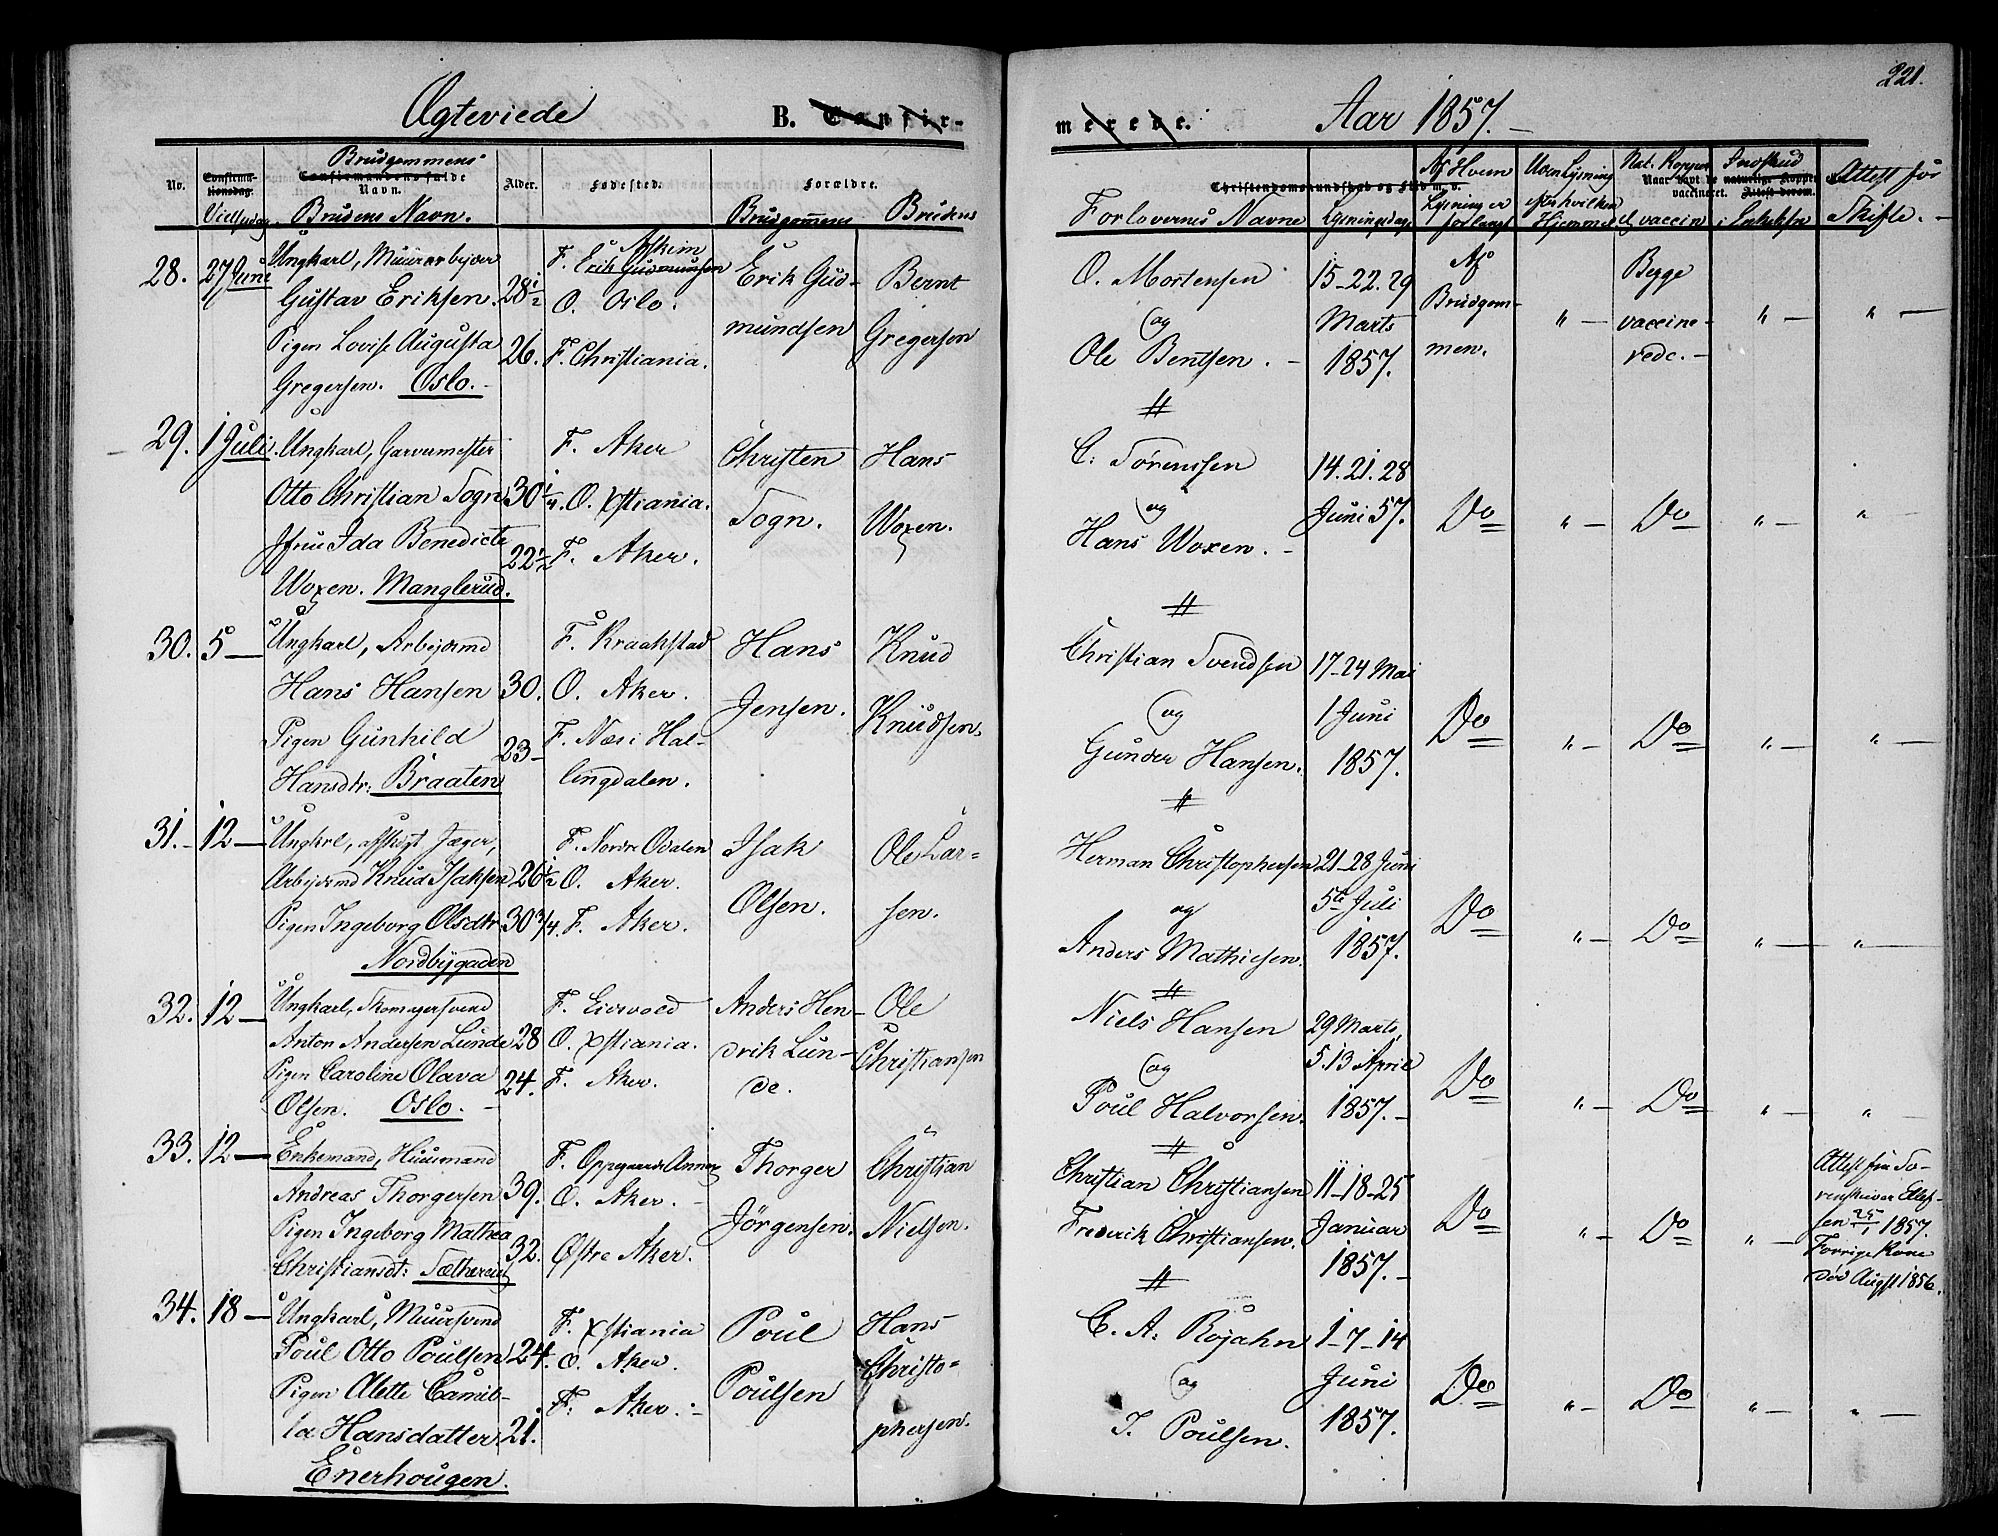 221.
Ægteviede B. Confir-
merede. Aar 1857.
No. Confirma-tionsdag. Vielsesdag Brudgommens Confirmandens fulde Navn. Brudens Navn. Alder. Fødested. Forældre. Brudgommens Brudens
Forlovernes Navne Lysningsdage Af Hvem Lysning er forlangt Uden Lysning efter hvilken Hjemmel Nat. Kopper el. vaccin Indskud i Enkekassen Attest for Skifte.
28. 27 Juni Ungkarl, Muurarbejder F. Askim Erik Gud- Bernt
Gustav Eriksen. 28 1/2 O. Oslo. mundsen Gregersen
Pigen Lovise Augusta 26. F. Christiania.
Gregersen. Oslo.
O. Mortensen 15-22.29 Af Bygge
og Marts Brudgom- " vaccine- " "
Ole Bentsen. 1857. men. rede.
29. 1 Juli Ungkarl, Garvermester F. Aker Christen Hans
Otto Christian Sogn 30 1/4 O. Xstiania. Sogn. Woxen.
Jfru Ida Benedicte 22 1/2 F. Aker.
Woxen. Manglerud.
C. Sørenssen 14.21.28
og Juni 57. Do " Do " "
Hans Woxen.
30. 5 Ungkarl, Arbejdsmd F. Kraakstad Hans Knud
Hans Hansen 30. O. Aker. Jensen. Knudsen.
Pigen Gunhild 23 F. Næs i Hal-
Hansdtr: Braaten lingdalen.
Christian Svendsen 17-24 Mai
og 1 Juni Do " Do " "
Gunder Hansen. 1857.
31. 12 Ungkrl, afskgt Jæger, F. Nordre Odalen Isak Ole Lar-
Arbejdsmd Knud Isaksen 26 1/2 O. Aker. Olsen. sen.
Pigen Ingeborg Olsdtr 30 3/4 F. Aker.
Nordbygaden
Herman Christophersen 21-28 Juni
og 5te Juli Do " Do " "
Anders Mathiesen. 1857.
32. 12 Ungkarl, Skomagersvend F. Eidsvold Anders Hen- Ole
Anton Andersen Lunde 28 O. Xstiania. drik Lun- Christiansen
Pigen Caroline Olava 24. F. Aker. de.
Olsen. Oslo.
Niels Hansen 29 Marts,
og 5.13 April Do " Do " "
Poul Halvorsen. 1857.
33. 12 Enkemand, Huusmand F. Oppegaards Annex Thorger Christian
Andreas Thorgersen 39. O. Aker. Jörgensen. Nielsen.
Pigen Ingeborg Mathea 32. Østre Aker.
Christiansdt:
Christian Christiansen 11-18-25 Attest fra So-
Frederik Christiansen. Januar Do " Do " renskriver
1857. 1857.
Forrige Kone
død Augst 1856.
34. 18 Ungkarl, Muursvend F. Xstiania Poul Hans
Poul Otto Poulsen 24. O. Aker. Poulsen Christo-
Pigen Alette Camil- F. Aker. phersen.
la Hansdatter. 21.
Enerhougen.
C. A. Rojahn 1-7-14
og Juni Do " Do " "
J. Poulsen. 1857.